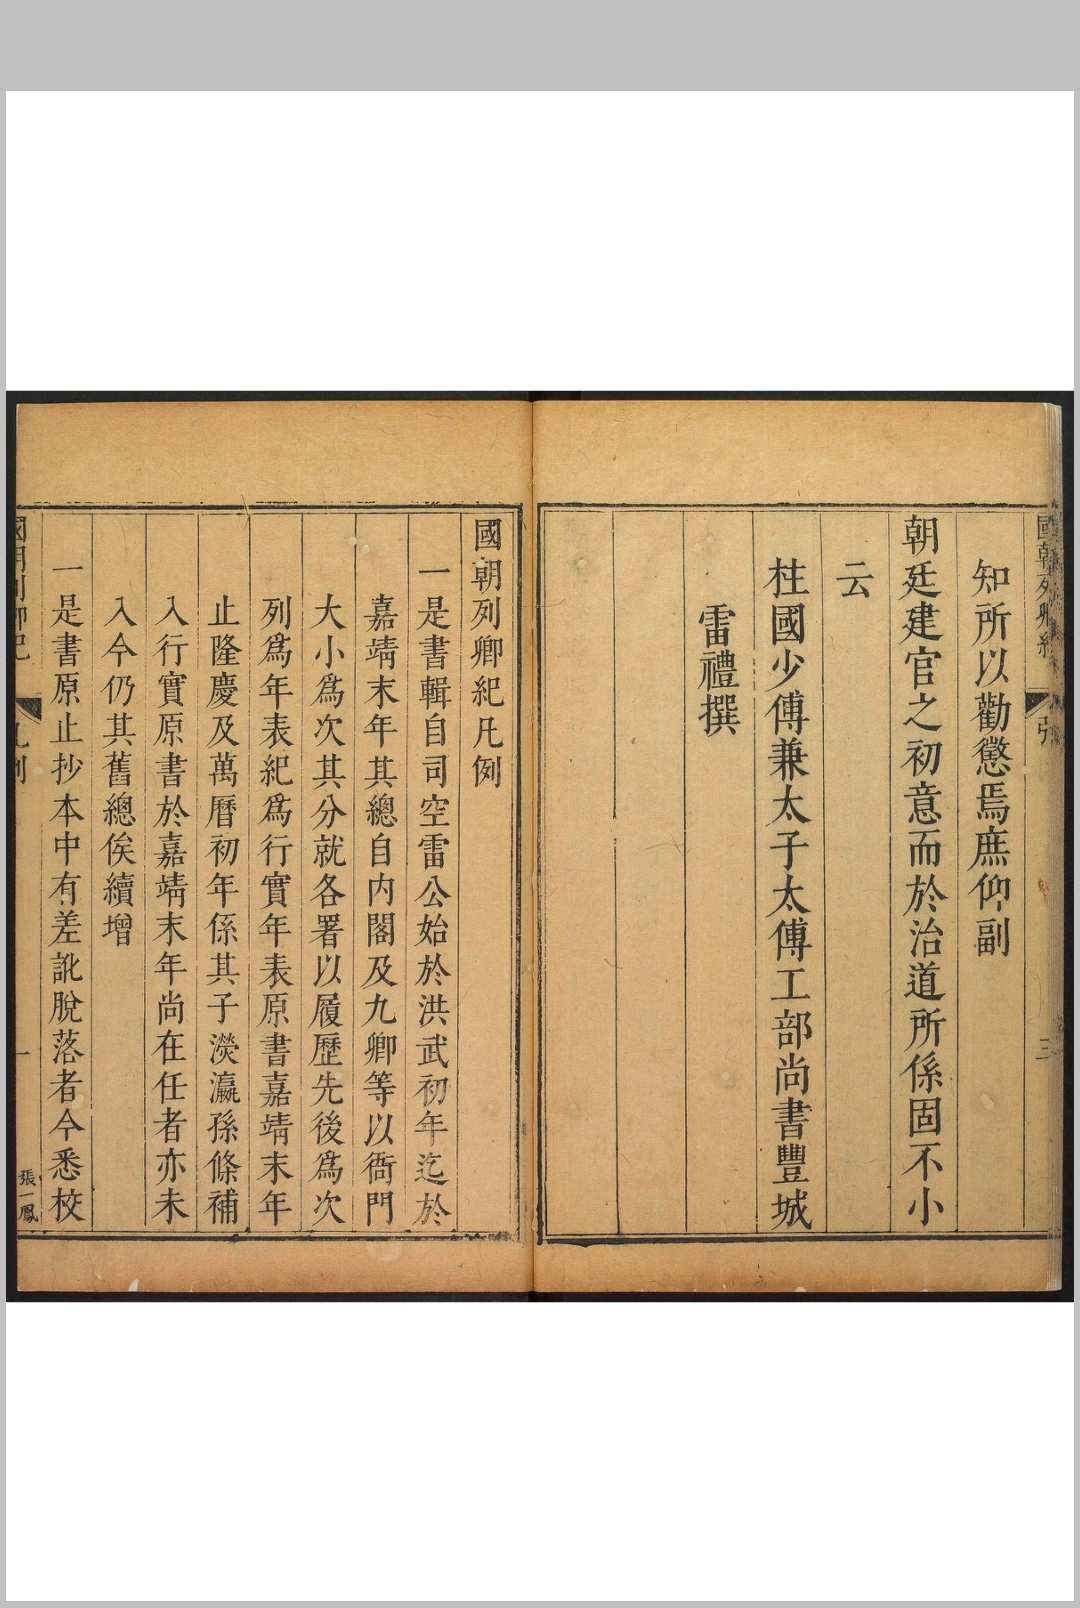 國朝列卿紀
引
三
知所以勸懲焉庶仰副
朝廷建官之初意而於治道所係固不小
云
柱國少傅兼太子太傅工部尚書豐城
雷禮撰
國朝列卿紀凡例
一是書輯自司空雷公始於洪武初年迄於
嘉靖末年其總自內閣及九卿等以衙門
大小爲次其分就各署以履歷先後爲次
列爲年表紀爲行實年表原書嘉靖末年
止隆慶及萬曆初年係其子濙瀛孫條補
入行實原書於嘉靖末年尚在任者亦未
入今仍其舊總俟續增
一是書原止抄本中有差訛脫落者今悉校
國朝列卿紀
凡例
一
張一鳳